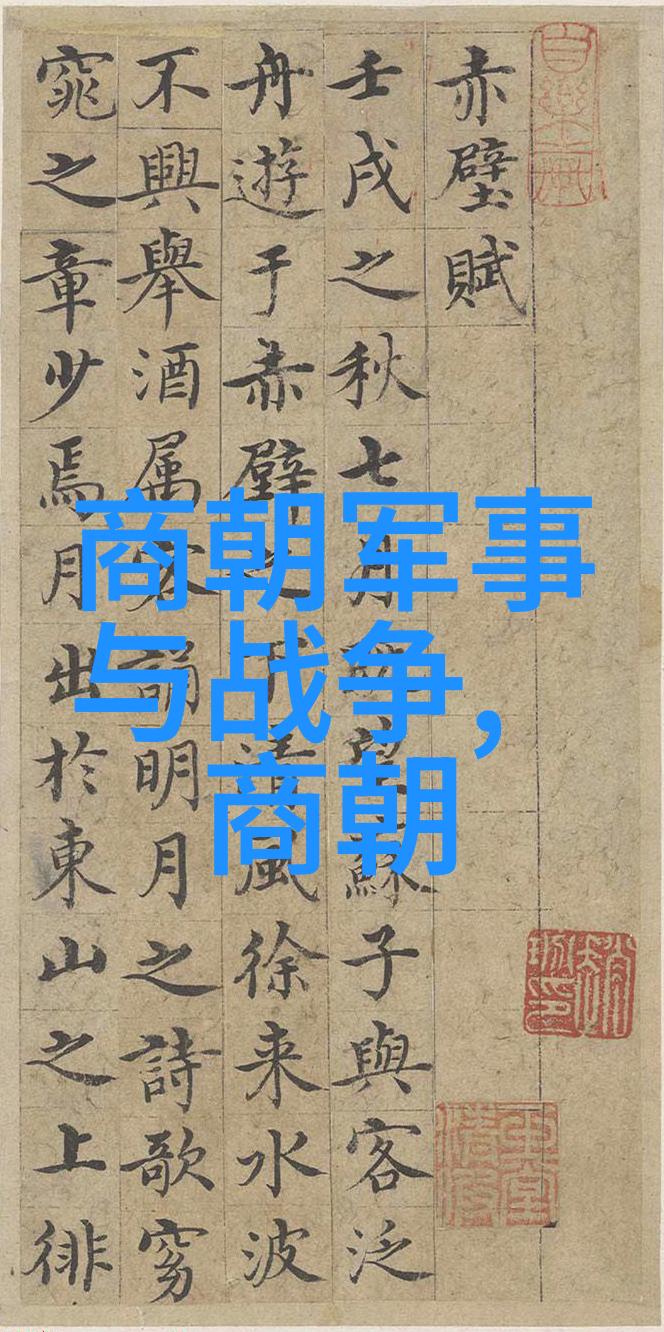 赤壁賦
壬戌之秋七月既望蘇子與客泛
舟遊于赤壁之下清風徐来水波
不興舉酒属客誦明月之詩歌窈
窕之章少焉月出於東山之上徘
商朝军事
与战争,
商朝